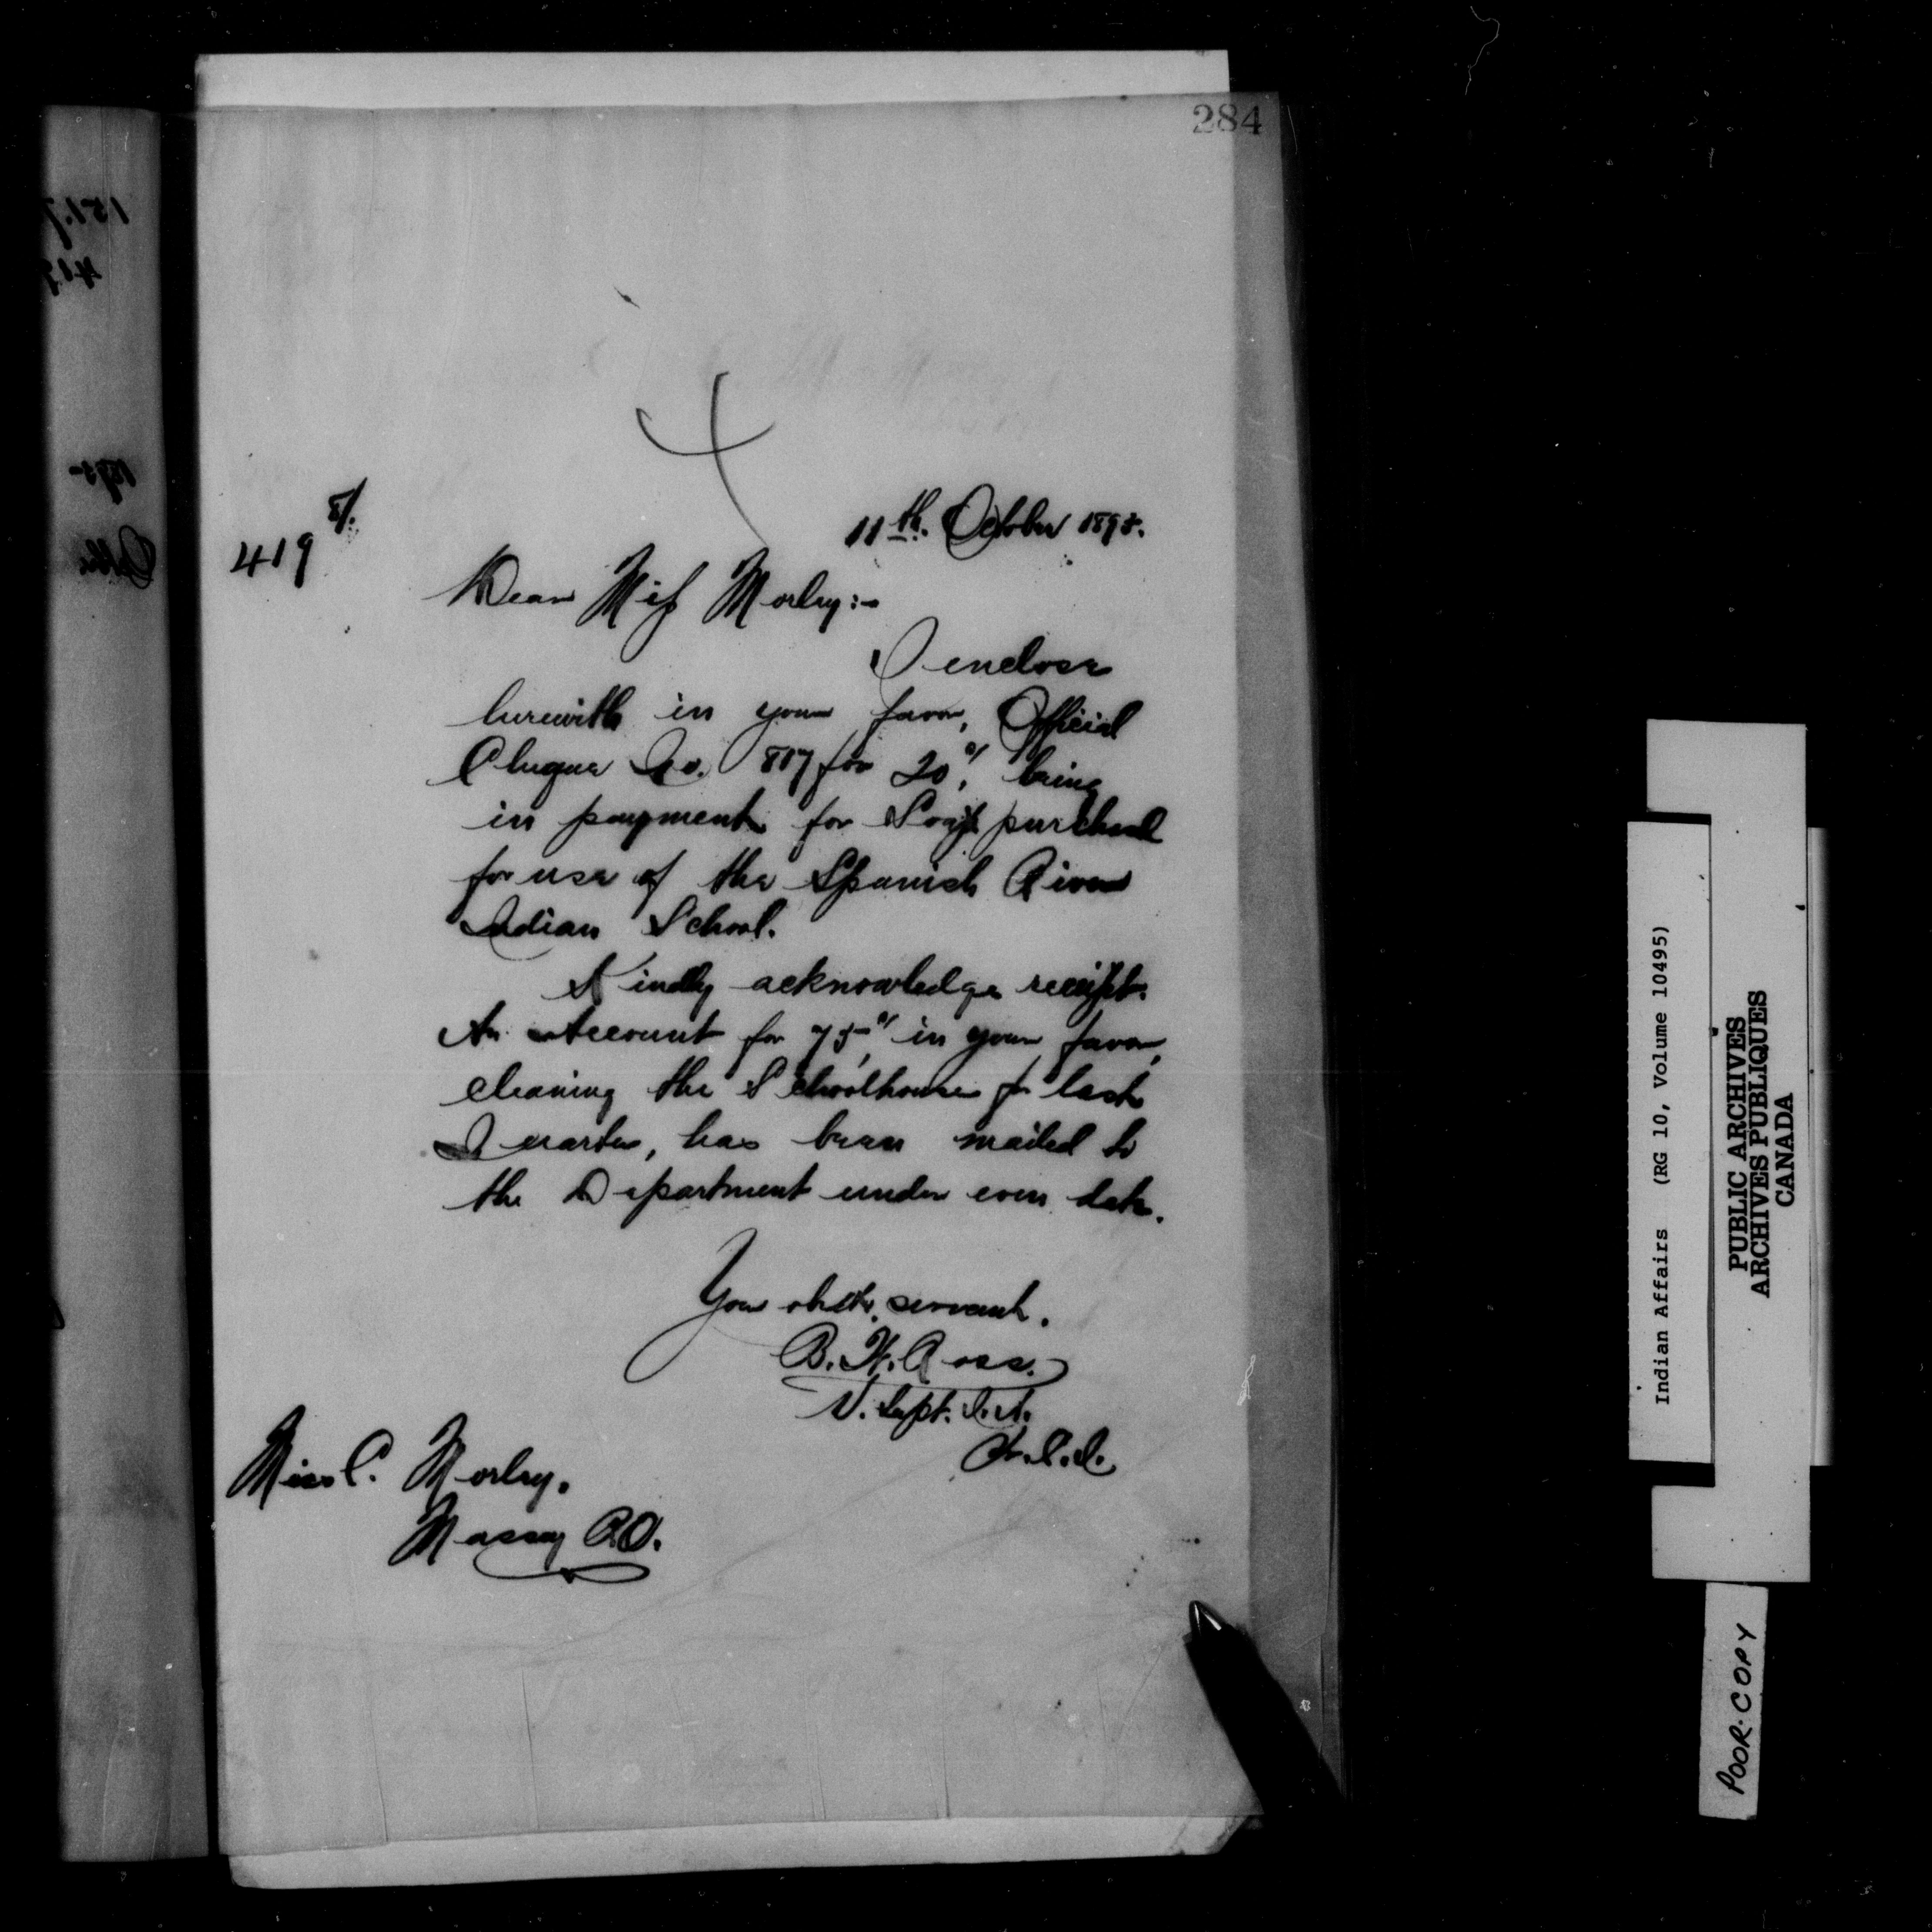 284
419
11th. October 1898.
Dear Miss Morley:-
I enclose
herewith in your favor, Official
Cheque No. 817 for 20¢, being
in payment for Soap purchased
for use of the Spanish River
Indian School.
Kindly acknowledge receipt.
An Account for 75¢ in your favor,
cleaning the Schoolhouse for last
Quarter, has been mailed to
the Department under even date.
Your obedt. servant.
B. W. Ross.
V. Supt. I. A.
Miss C. Morley.
Massey P.O.
Indian Affairs (RG 10, Volume 10495)
PUBLIC ARCHIVES
ARCHIVES PUBLIQUES
CANADA
POOR COPY